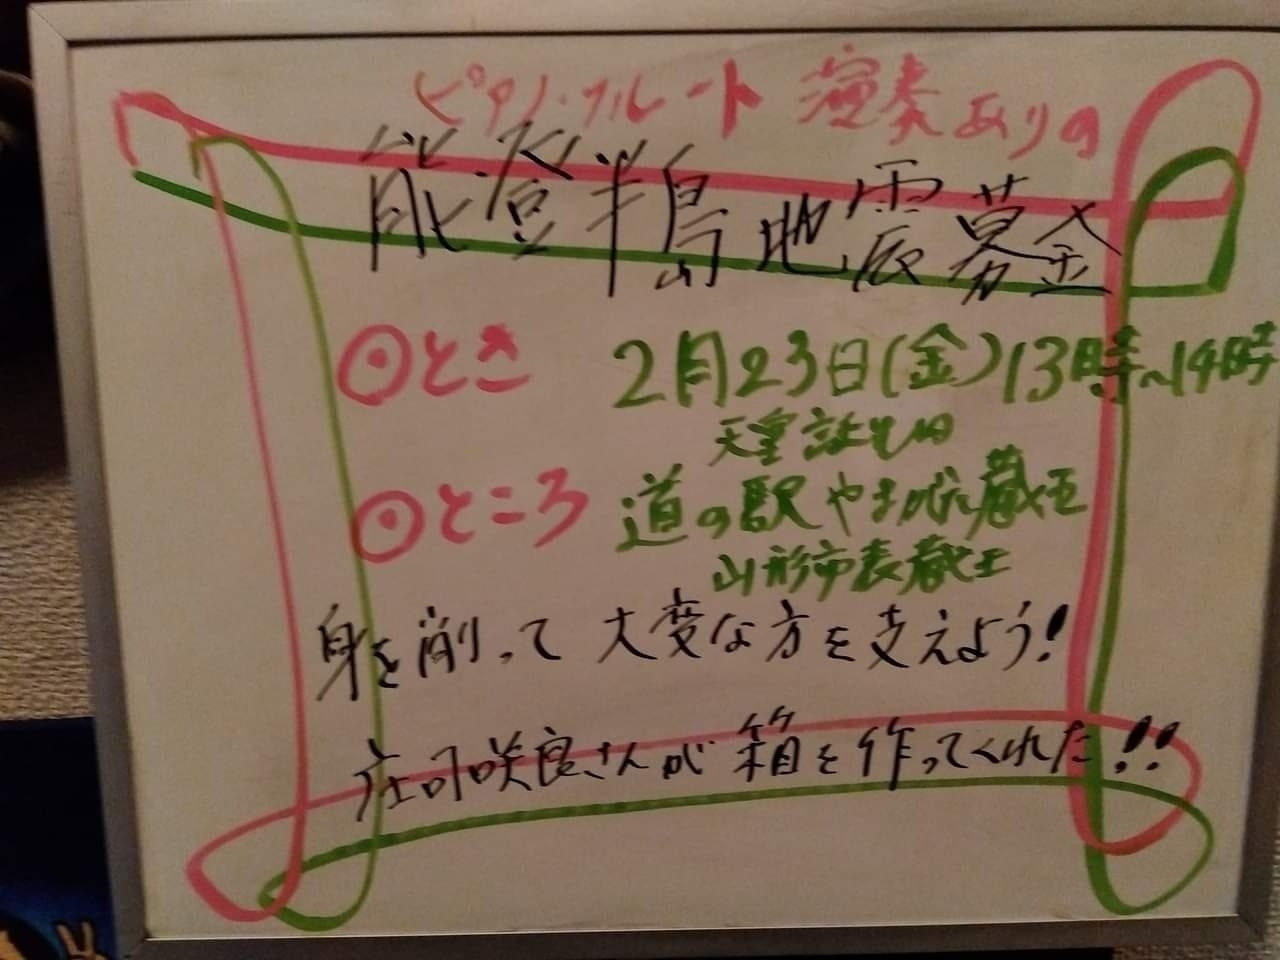 ピアノ・フルート 演奏ありの
能登半島地震募金
⦿とき 2月23日(金)13時〜14時
天皇誕生日
⦿ところ 道の駅やまがた蔵王
山形市表蔵王
身を削って大変な方を支えよう!
庄司咲良さんが箱を作ってくれた!!